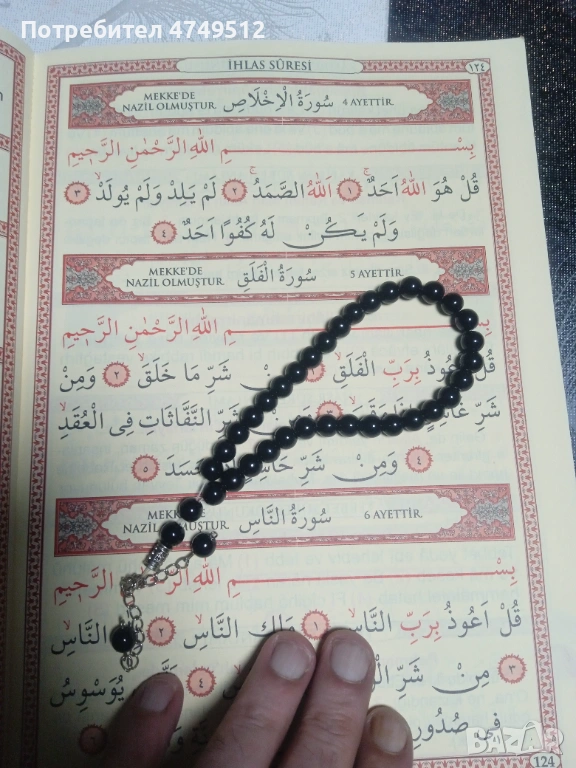 Потребител 4749512
İHLAS SÛRESİ
١٢٤
MEKKE'DE NAZİL OLMUŞTUR سُورَةُ الْاِخْلَاصِ 4 AYETTİR
بِسْمِ اللّٰهِ الرَّحْمٰنِ الرَّحٖيمِ
قُلْ هُوَ اللّٰهُ اَحَدٌۚ ١ اَللّٰهُ الصَّمَدُۚ ٢ لَمْ يَلِدْ وَلَمْ يُولَدْۙ ٣
وَلَمْ يَكُنْ لَهُ كُفُوًا اَحَدٌ ٤
MEKKE'DE NAZİL OLMUŞTUR سُورَةُ الْفَلَقِ 5 AYETTİR
بِسْمِ اللّٰهِ الرَّحْمٰنِ الرَّحٖيمِ
قُلْ اَعُوذُ بِرَبِّ الْفَلَقِۙ مِنْ شَرِّ مَا خَلَقَۙ ٢ وَمِنْ
شَرِّ وَمِنْ شَرِّ النَّفَّاثَاتِ فِى الْعُقَدِۙ
٤ وَمِنْ شَرِّ حَاسِدٍ حَسَدَ ٥
MEKKE'DE NAZİL OLMUŞTUR سُورَةُ النَّاسِ 6 AYETTİR
بِسْمِ اللّٰهِ الرَّحْمٰنِ الرَّحٖيمِ
قُلْ اَعُوذُ بِرَبِّ النَّاسِۙ ١ مَلِكِ النَّاسِۙ ٢ النَّاسِۙ
٣ مِنْ شَرِّ ٤ يُوَسْوِسُ
فٖى صُدُورِ
124
BAZAR